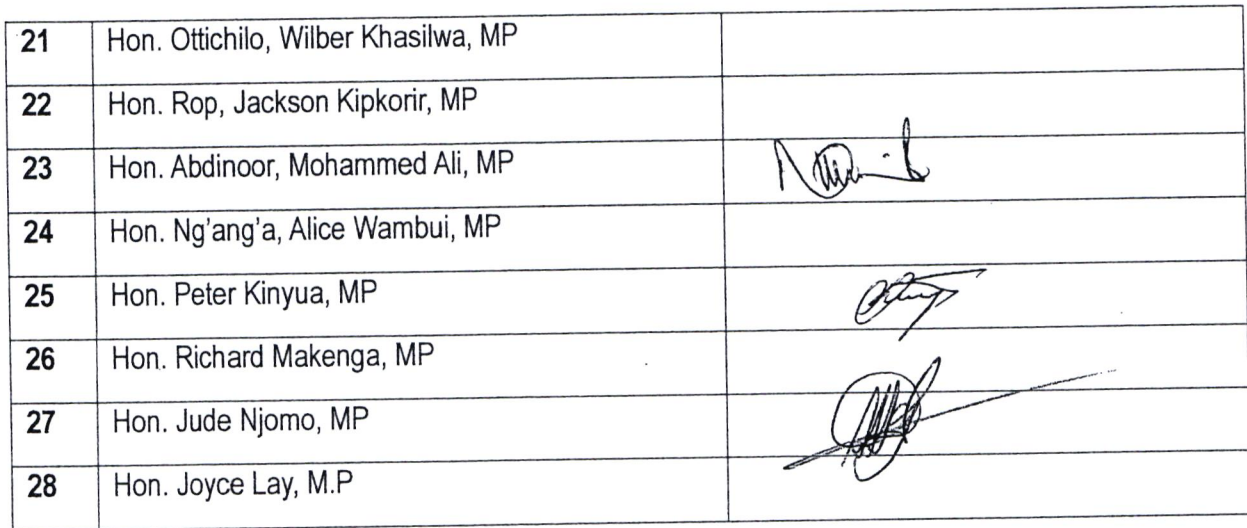 21 Hon. Ottichilo, Wilber Khasilwa, MP
22 Hon. Rop, Jackson Kipkorir, MP
23 Hon. Abdinoor, Mohammed Ali, MP
24 Hon. Ng’ang’a, Alice Wambui, MP
25 Hon. Peter Kinyua, MP
26 Hon. Richard Makenga, MP
27 Hon. Jude Njomo, MP
28 Hon. Joyce Lay, M.P